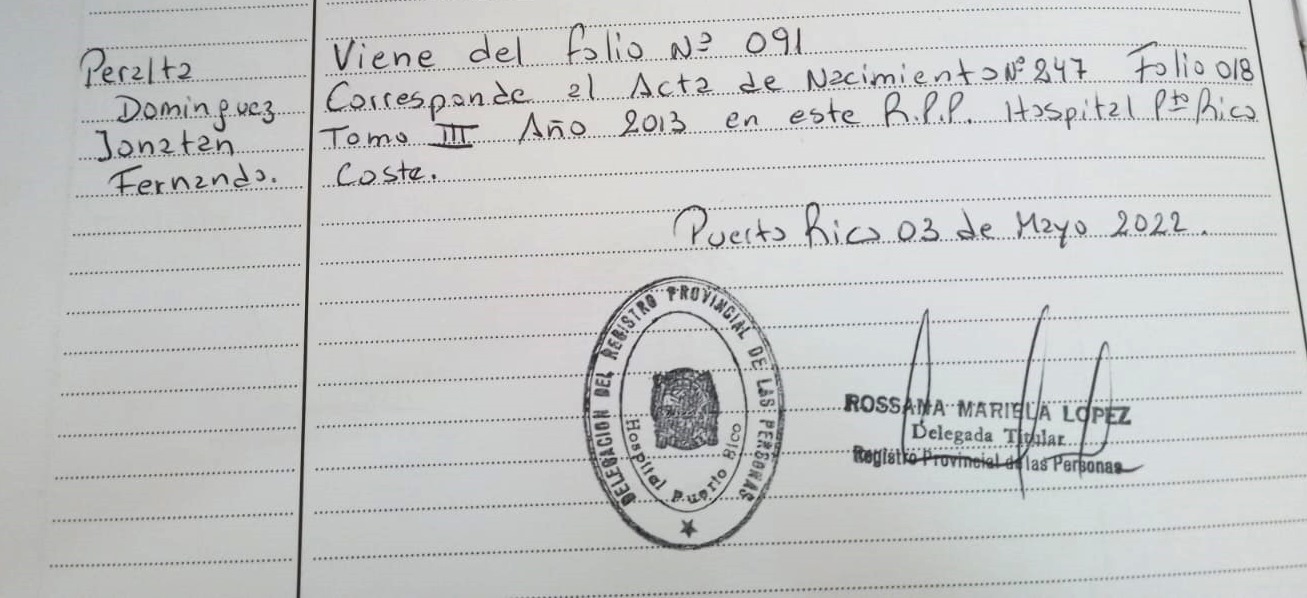 Peralta
Dominguez
Jonatan
Fernando.
Viene del folio Nº 091
Corresponde al Acta de Nacimiento Nº 247 Folio 018
Tomo III Año 2013 en este R.P.P. Hospital Pto Rico
Coste.
Puerto Rico 03 de Mayo 2022.
DELEGACION DEL REGISTRO PROVINCIAL DE LAS PERSONAS
Hospital Puerto Rico
ROSSANA MARIELA LOPEZ
Delegada Titular
Registro Provincial de las Personas